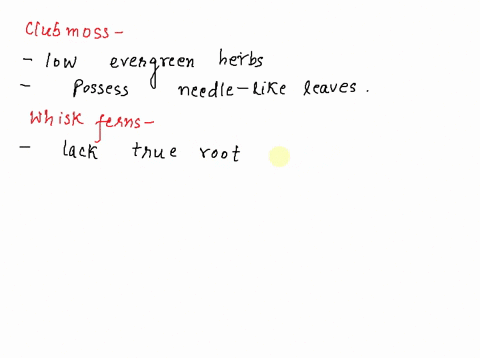 Club moss -
- low evergreen herbs
- Possess needle-like leaves.
Whisk ferns -
- lack true root